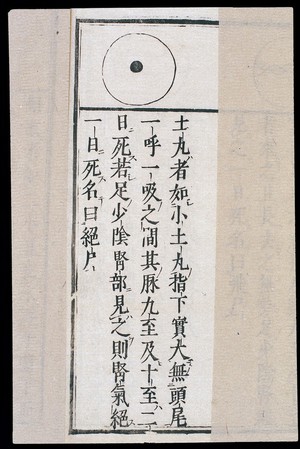 土丸者如小土丸指下實大無頭尾
一呼一吸之間其脉九至及十至二
日死若足少陰腎部見之則腎氣絕
一日死名曰絕尸